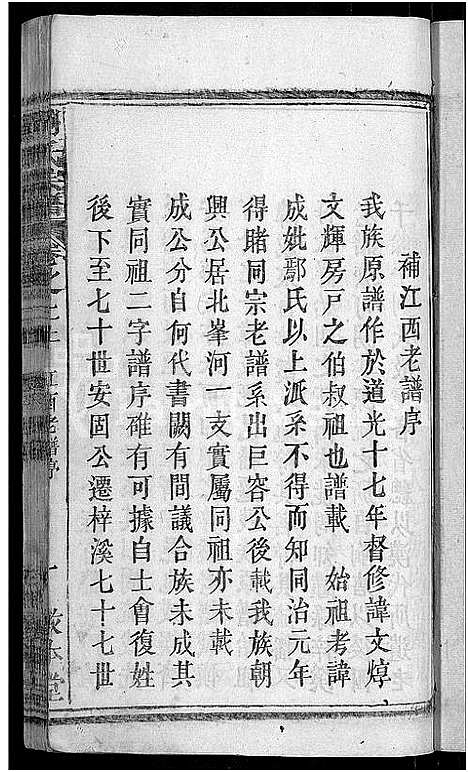 補江西老譜序
我族原譜作於道光十七年督修諱文焞
文輝房戶之伯叔祖也譜載　始祖考諱
成妣鄢氏以上派系不得而知同治元年
得睹同宗老譜系出巨容公後載我族朝
興公居北峯河一支實屬同祖亦未載
成公分自何代書闕有間議合族未成其
實同祖二字譜序確有可據自士會復姓
後下至七十世安固公遷梓溪七十七世
江西老譜序
一